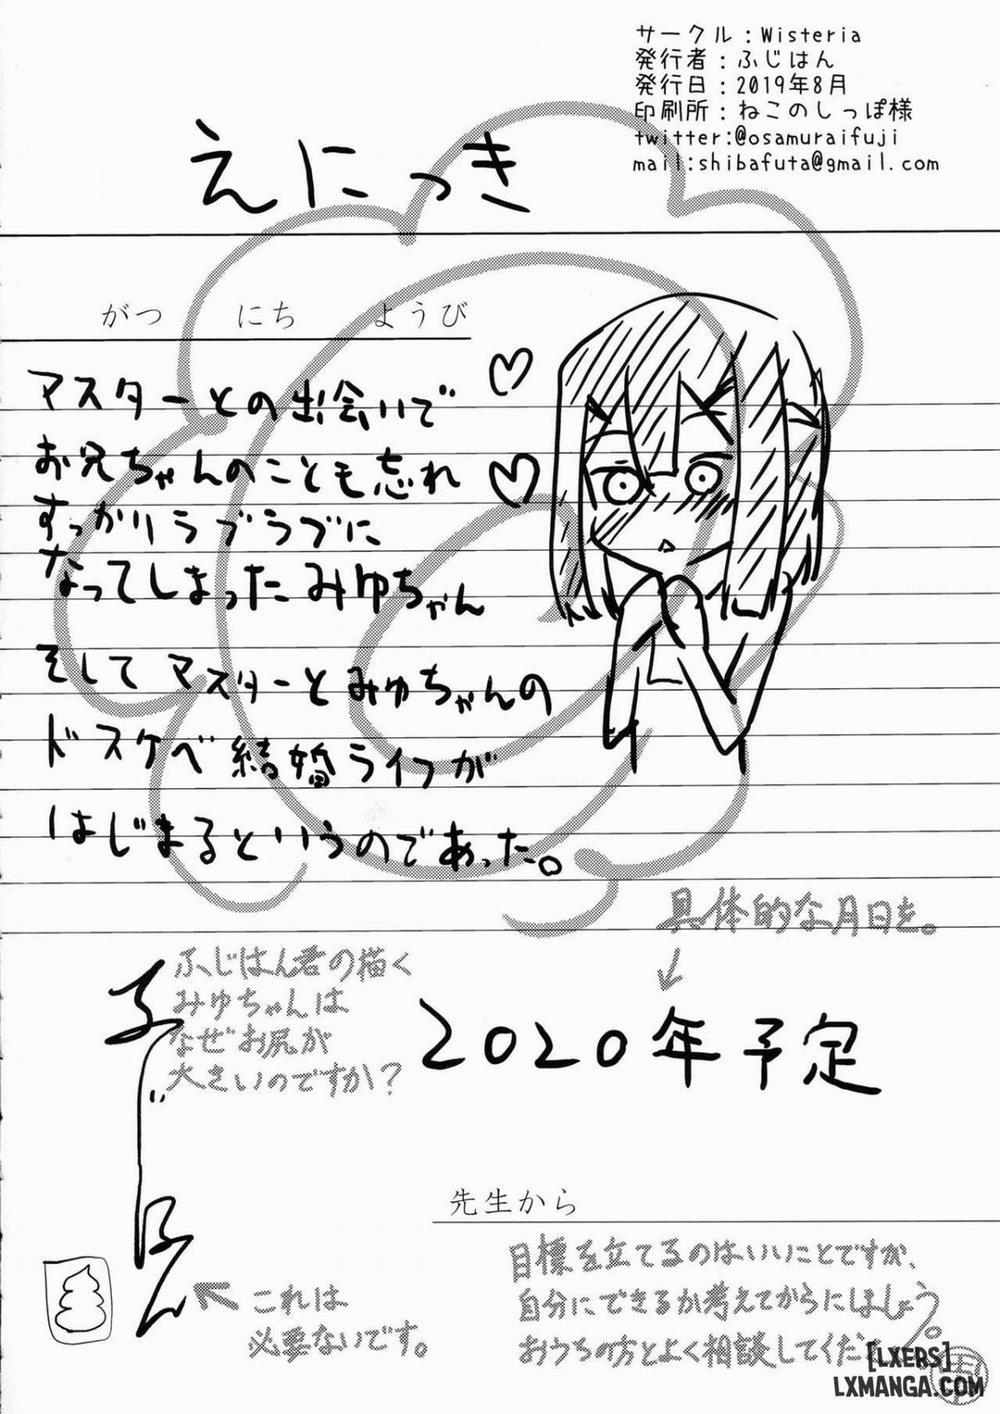 サークル：Wisteria
発行者：ふじはん
発行日：2019年8月
印刷所：ねこのしっぽ様
twitter:@osamuraifuji
mail:shibafuta@gmail.com
えにっき
がつ　にち　ようび
マスターとの出会いで
お兄ちゃんのことも忘れ
すっかりラブラブに
なってしまったみゆちゃん
そしてマスターとみゆちゃんの
ドスケベ結婚ライフが
はじまるというのであった。
具体的な月日を。
↓
2020年予定
ふじはん君の描く
みゆちゃんは
なぜお尻が
大きいのですか?
ふじはん
これは
必要ないです。
先生から
目標を立てるのはいいことですが、
自分にできるか考えてからにしましょう。
おうちの方とよく相談してくだ
[LXERS]
LXMANGA.COM